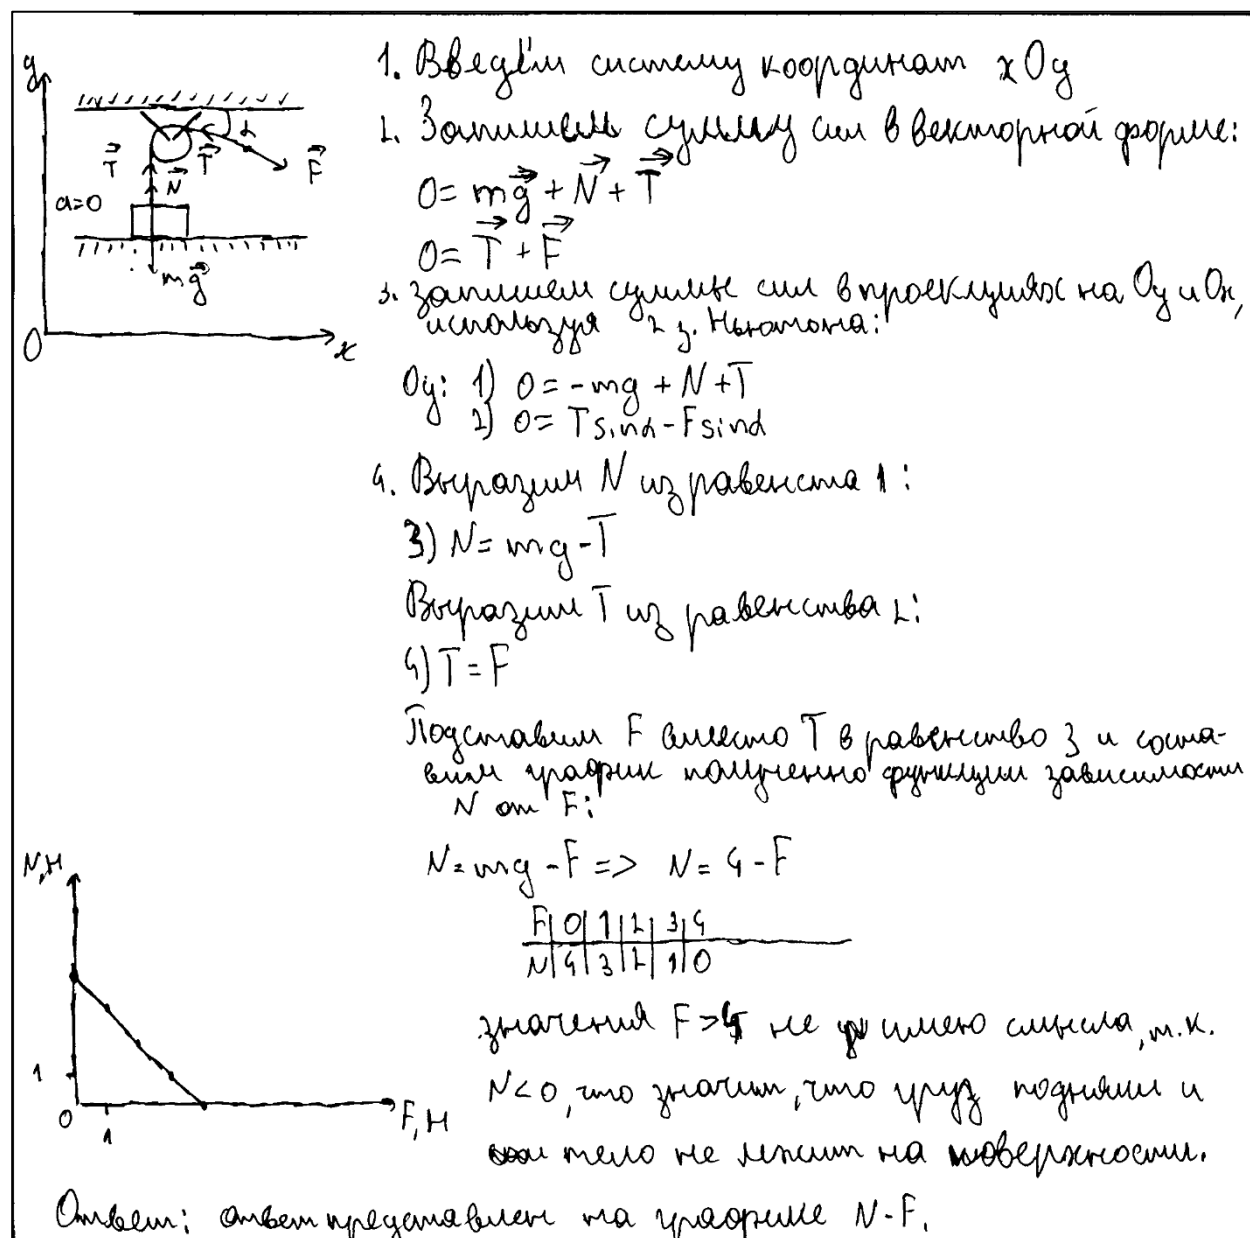 y
1. Введём систему координат xOy
2. Запишем сумму сил в векторной форме:
0 = mg + N + T
0 = T + F
3. Запишем суммы сил в проекциях на Oy и Ox,
используя 2 з. Ньютона:
Oy: 1) 0 = -mg + N + T
2) 0 = Tsinα - Fsinα
4. Выразим N из равенста 1:
3) N = mg - T
Выразим T из равенства 2:
4) T = F
Подставим F вместо T в равенство 3 и соста-
вим график полученно функции зависимости
N от F:
N = mg - F => N = 4 - F
F | 0 | 1 | 2 | 3 | 4
N | 4 | 3 | 2 | 1 | 0
значения F > 4 не имею смысла, т.к.
N < 0, что значит, что груз подняли и
тело не лежит на поверхности.
Ответ: ответ представлен на графике N-F.
α
T
T
F
N
a=0
mg
O
x
N, Н
1
0
1
F, Н